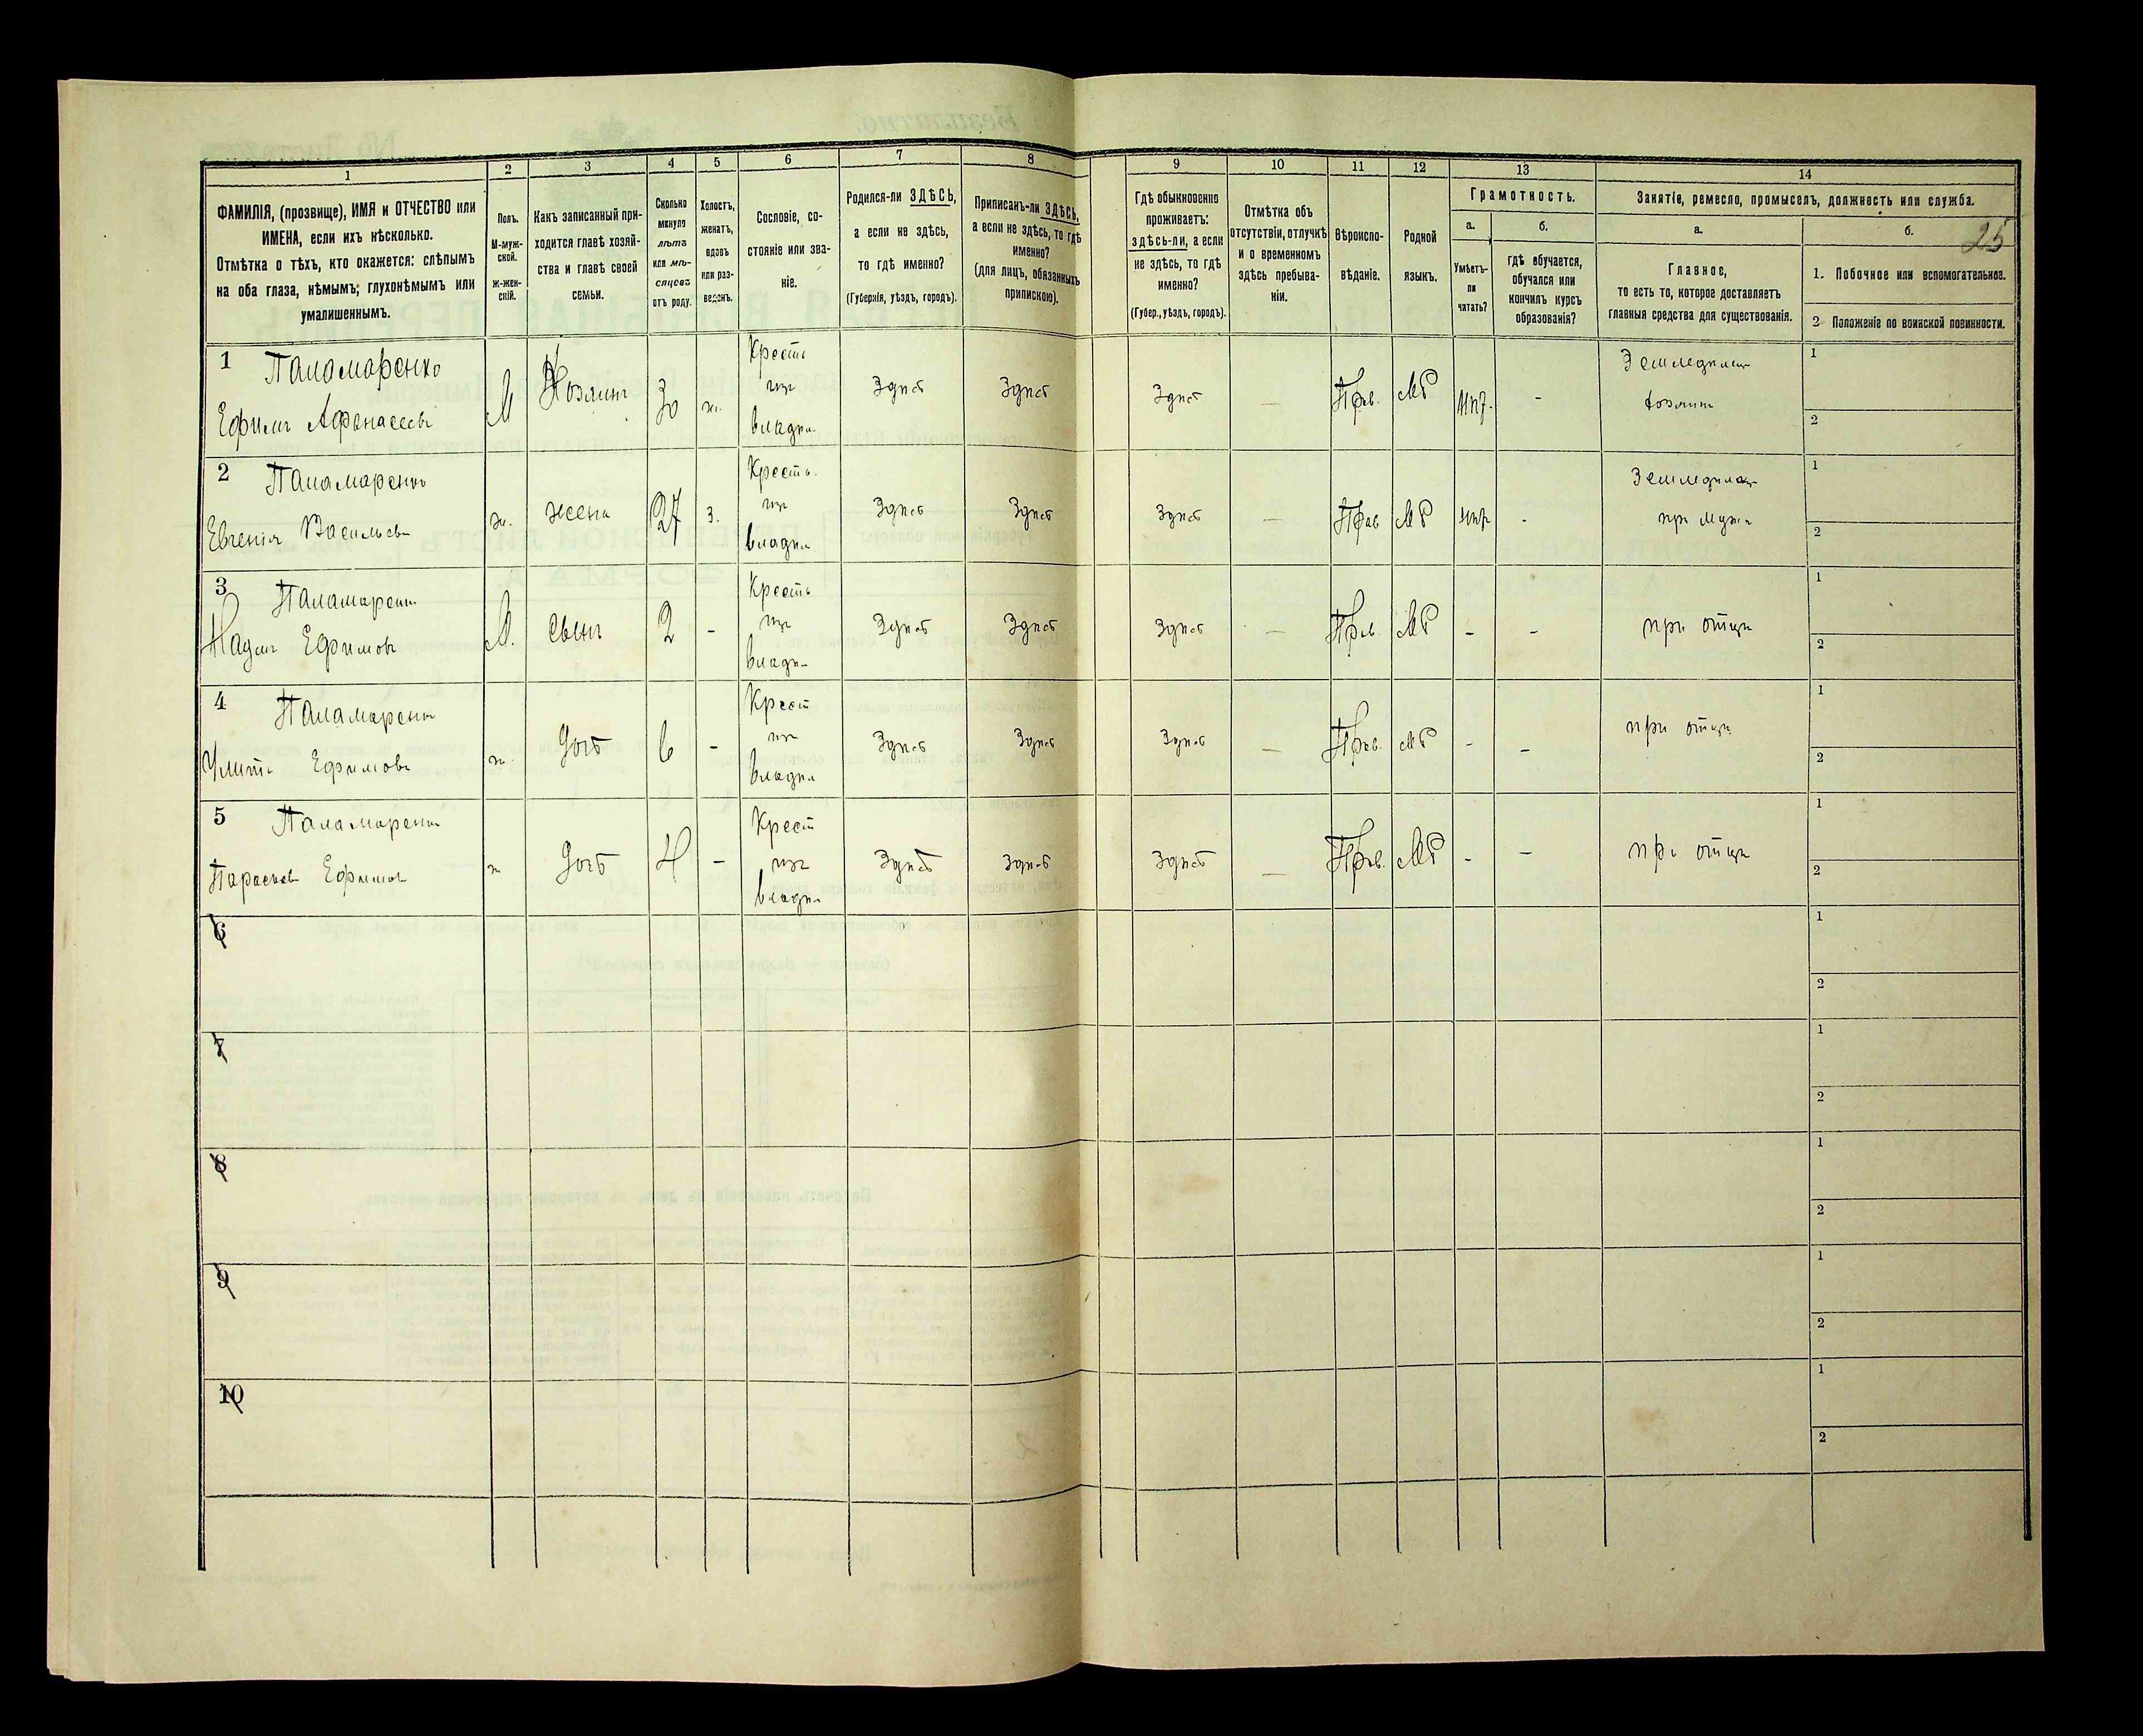 1
2
3
4
5
6
7
8
9
10
11
12
13
14
ФАМИЛІЯ, (прозвище), ИМЯ и ОТЧЕСТВО или
ИМЕНА, если ихъ нѣсколько.
Отмѣтка о тѣхъ, кто окажется: слѣпымъ
на оба глаза, нѣмымъ; глухонѣмымъ или
умалишеннымъ.
Полъ.
М-муж-
ской.
ж-жен-
скій.
Какъ записанный при-
ходится главѣ хозяй-
ства и главѣ своей
семьи.
Сколько
минуло
лѣтъ
или мѣ-
сяцевъ
отъ роду.
Холостъ,
женатъ,
вдовъ
или раз-
веденъ.
Сословіе, со-
стояніе или зва-
ніе.
Родился-ли ЗДѢСЬ,
а если не здѣсь,
то гдѣ именно?
(Губернія, уѣздъ, городъ).
Приписанъ-ли ЗДѢСЬ,
а если не здѣсь, то гдѣ
именно?
(для лицъ, обязанныхъ
припискою).
Гдѣ обыкновенно
проживаетъ:
здѣсь-ли, а если
не здѣсь, то гдѣ
именно?
(Губер., уѣздъ, городъ).
Отмѣтка объ
отсутствіи, отлучкѣ
и о временномъ
здѣсь пребыва-
ніи.
Вѣроиспо-
вѣданіе.
Родной
языкъ.
Грамотность.
а.
б.
Умѣетъ-
ли
читать?
гдѣ обучается,
обучался или
кончилъ курсъ
образованія?
Занятіе, ремесло, промыселъ, должность или служба.
а.
б.
25
Главное,
то есть то, которое доставляетъ
главныя средства для существованія.
1. Побочное или вспомогательное.
2 Положеніе по воинской повинности.
1 Паламаренко
Ефимъ Афанасьевъ
М
Хозяинъ
30
ж.
Крестъ
изъ
владѣл
Здѣсь
Здѣсь
Здѣсь
—
Прав.
МР
нѣт.
-
Земледѣлец
хозяинъ
1
2
2 Паламаренко
Евгенія Васильева
ж.
жена
27
з.
Кресть.
изъ
владѣл
Здѣсь
Здѣсь
Здѣсь
—
Прав
МР
нѣт
-
Земледѣлец
при мужѣ
1
2
3 Паламаренк
Ефимовъ
М.
сынъ
2
-
Кресть
изъ
владѣл
Здѣсь
Здѣсь
Здѣсь
—
Прав.
МР
-
-
при отцѣ
1
2
4 Паламаренк
Улита Ефимова
ж.
дочь
6
-
Крест
изъ
владѣл
Здѣсь
Здѣсь
Здѣсь
—
Прав.
МР
-
-
при отцѣ
1
2
5 Паламаренк
Параскев Ефимов
ж
дочь
4
-
Крест
изъ
владѣл
Здѣсь
Здѣсь
Здѣсь
—
Прав.
МР
-
-
при отцѣ
1
2
6
1
2
7
1
2
8
1
2
9
1
2
10
1
2